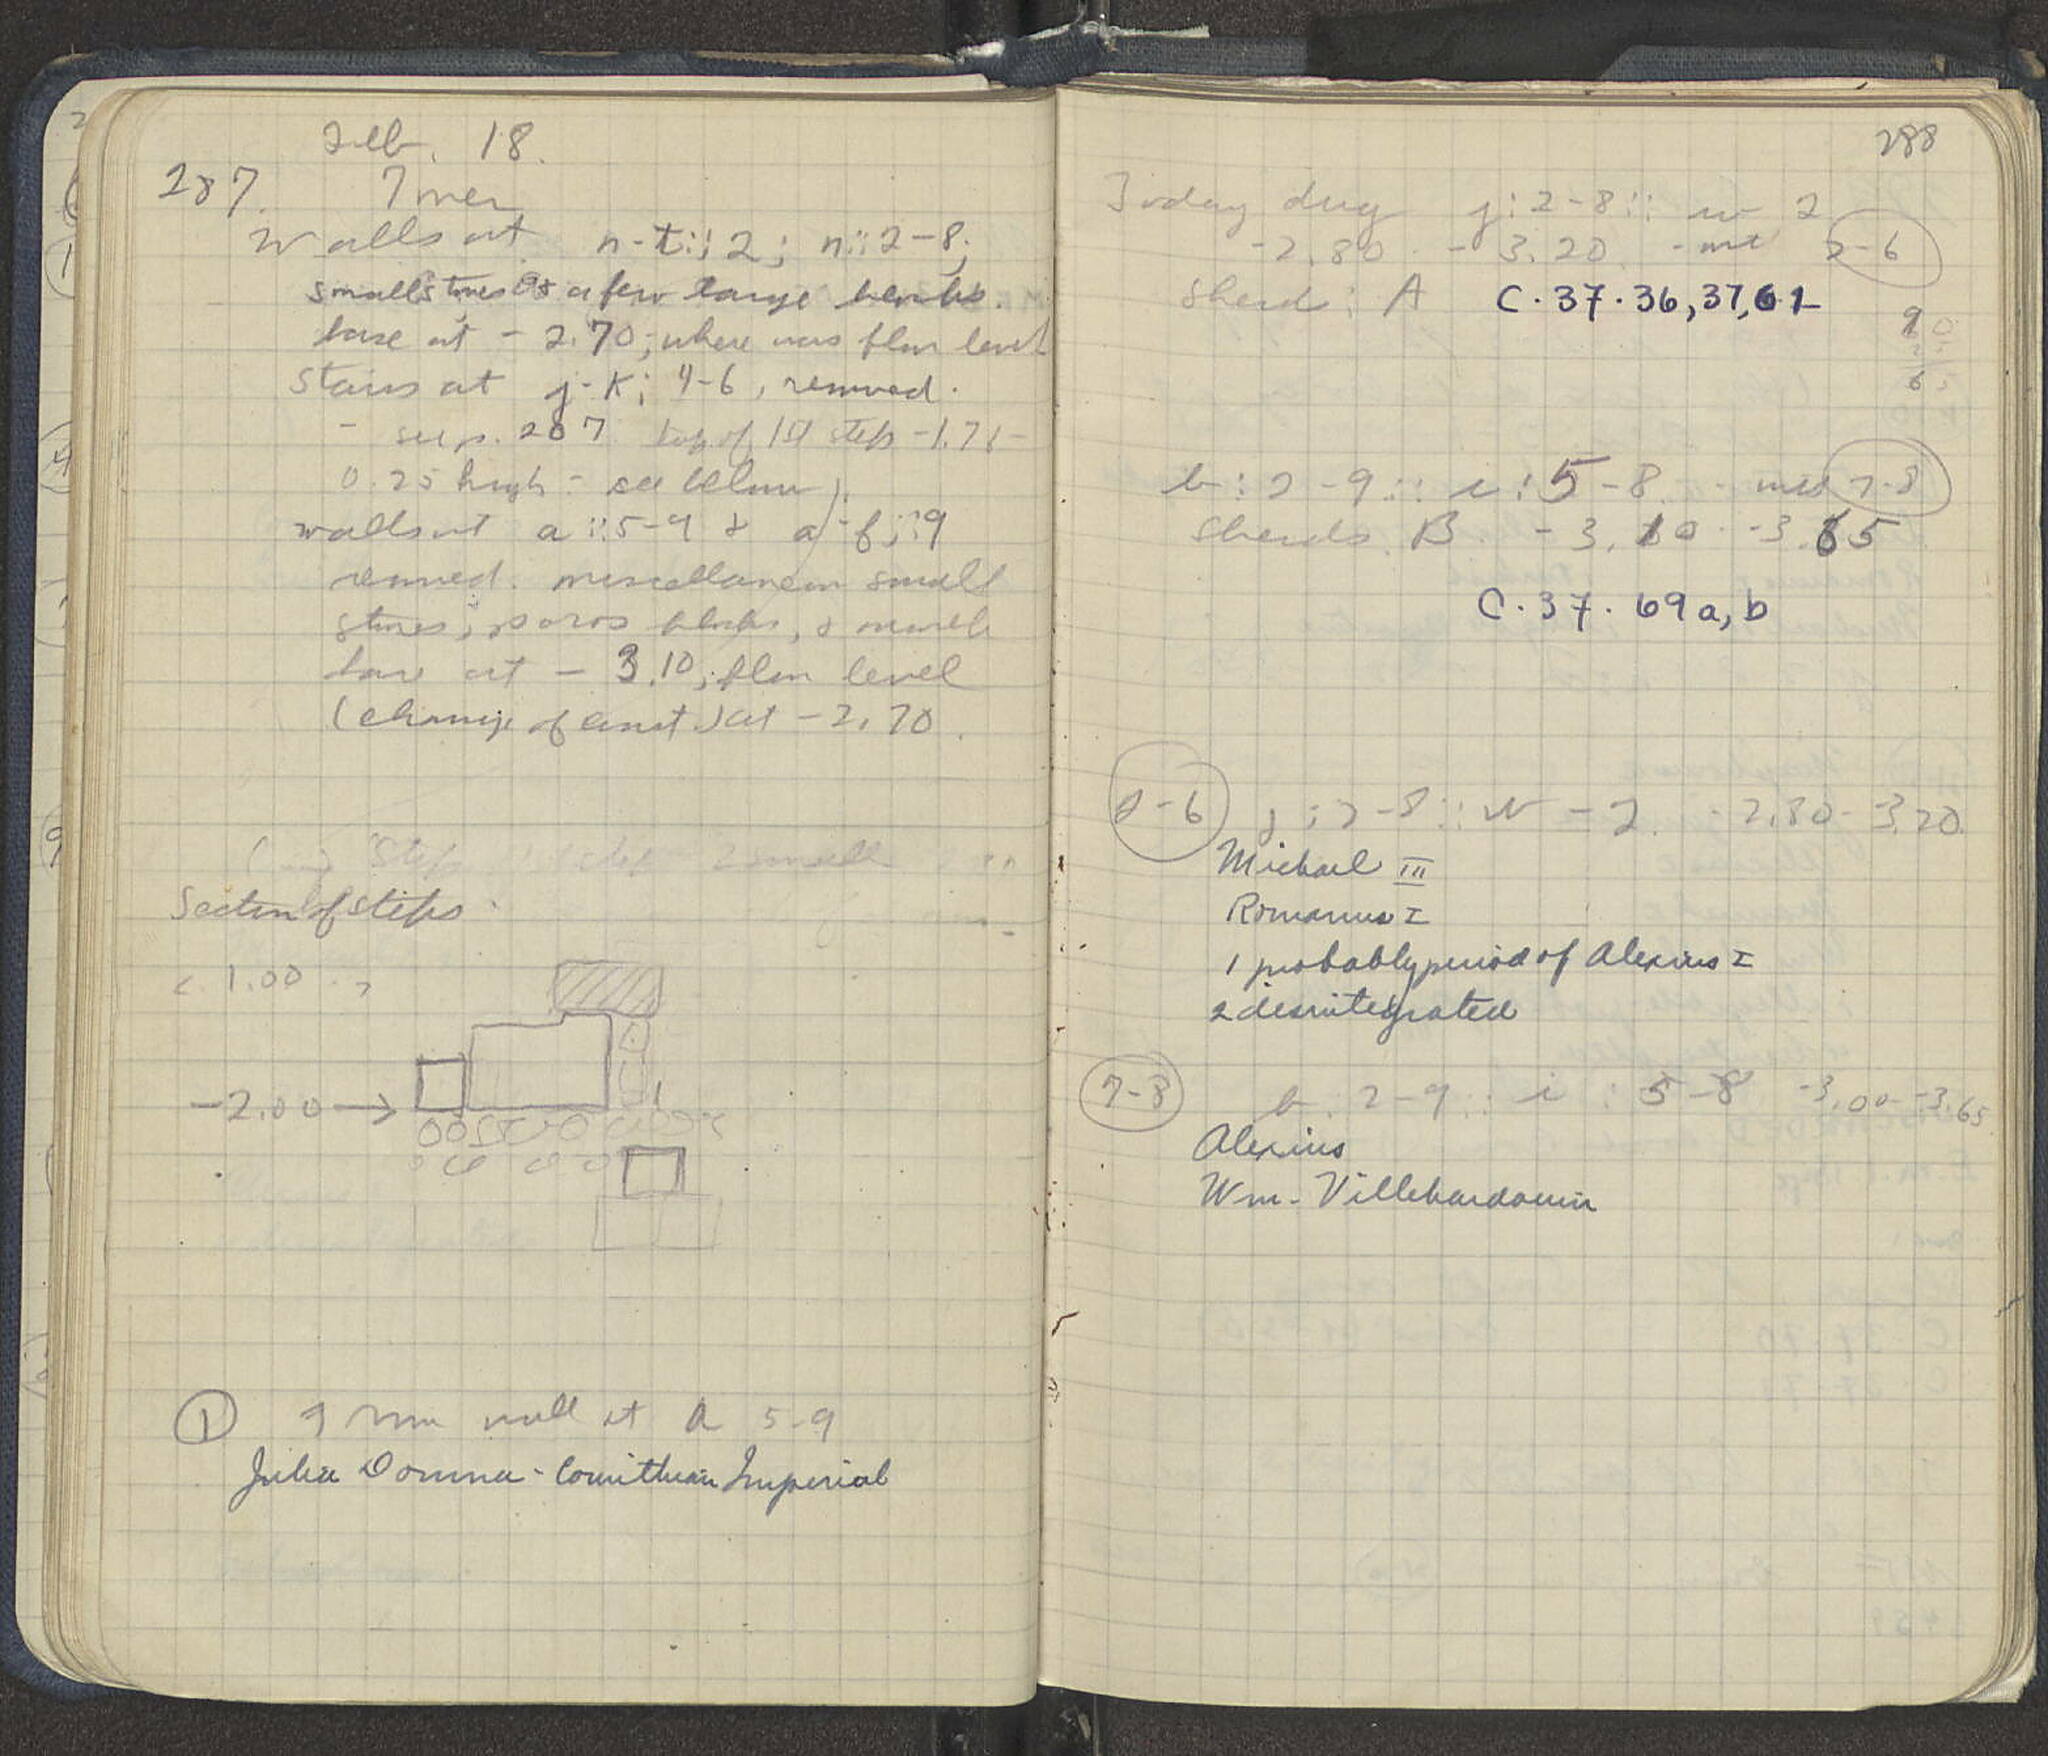 Feb. 18.
287. 7 men
Walls at n-t::2; n::2-8;
small stones & a few large blocks.
base at - 2.70; where was floor level
Stairs at j-k; 4-6, removed.
- see p. 207 top of 1st step -1.75-
0.25 high - see below).
walls at a::5-9 & a-f::9
removed. miscellaneous small
stones, poros blocks, & marble
base at - 3.10; floor level
(change of const.) at - 2.70.
Section of steps.
c. 1.00
-2.00 →
1 From wall at a 5-9
Julia Domna - Corinthian Imperial
288
Today dug j:2-8:: w 2
-2.80 - -3.20.
2-6
Sherds: A C.37.36,37,61
b:2-9:: i:5-8
7-8
Sherds. B. -3.10 -3.65
C.37.69a,b
2-6 j:2-8:: w-2. -2.80 -3.20.
Michael III
Romanus I
1 probably period of Alexius I
2 disintegrated
7-8 b:2-9:: i:5-8 -3.00 -3.65
Alexius
Wm. Villehardouin